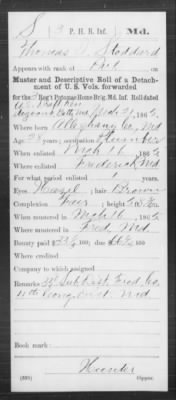 S | 3 P. H. B. Inf. | Md.
Thomas Stoddard
Appears with rank of Pvt on
Muster and Descriptive Roll of a Detachment of U. S. Vols. forwarded
for the 3 Reg't Potomac Home Brig. Md. Inf. Roll dated
186
Where born Alleghany Co, Md
Age 28 years; occupation
When enlisted Mch 16, 186
Where enlisted Frederick Md
For what period enlisted 1 years.
Eyes Hazel; hair Brown
Complexion Fair; height 5 ft. in.
When mustered in Mch 16, 186
Where mustered in Fred. Md
Bounty paid $ 100; due $ 100
Where credited
Company to which assigned
Remarks: Sub Dist. Fred. Co.
Cong. Dist. Md
Book mark:
Hunter
(339) Copyist.